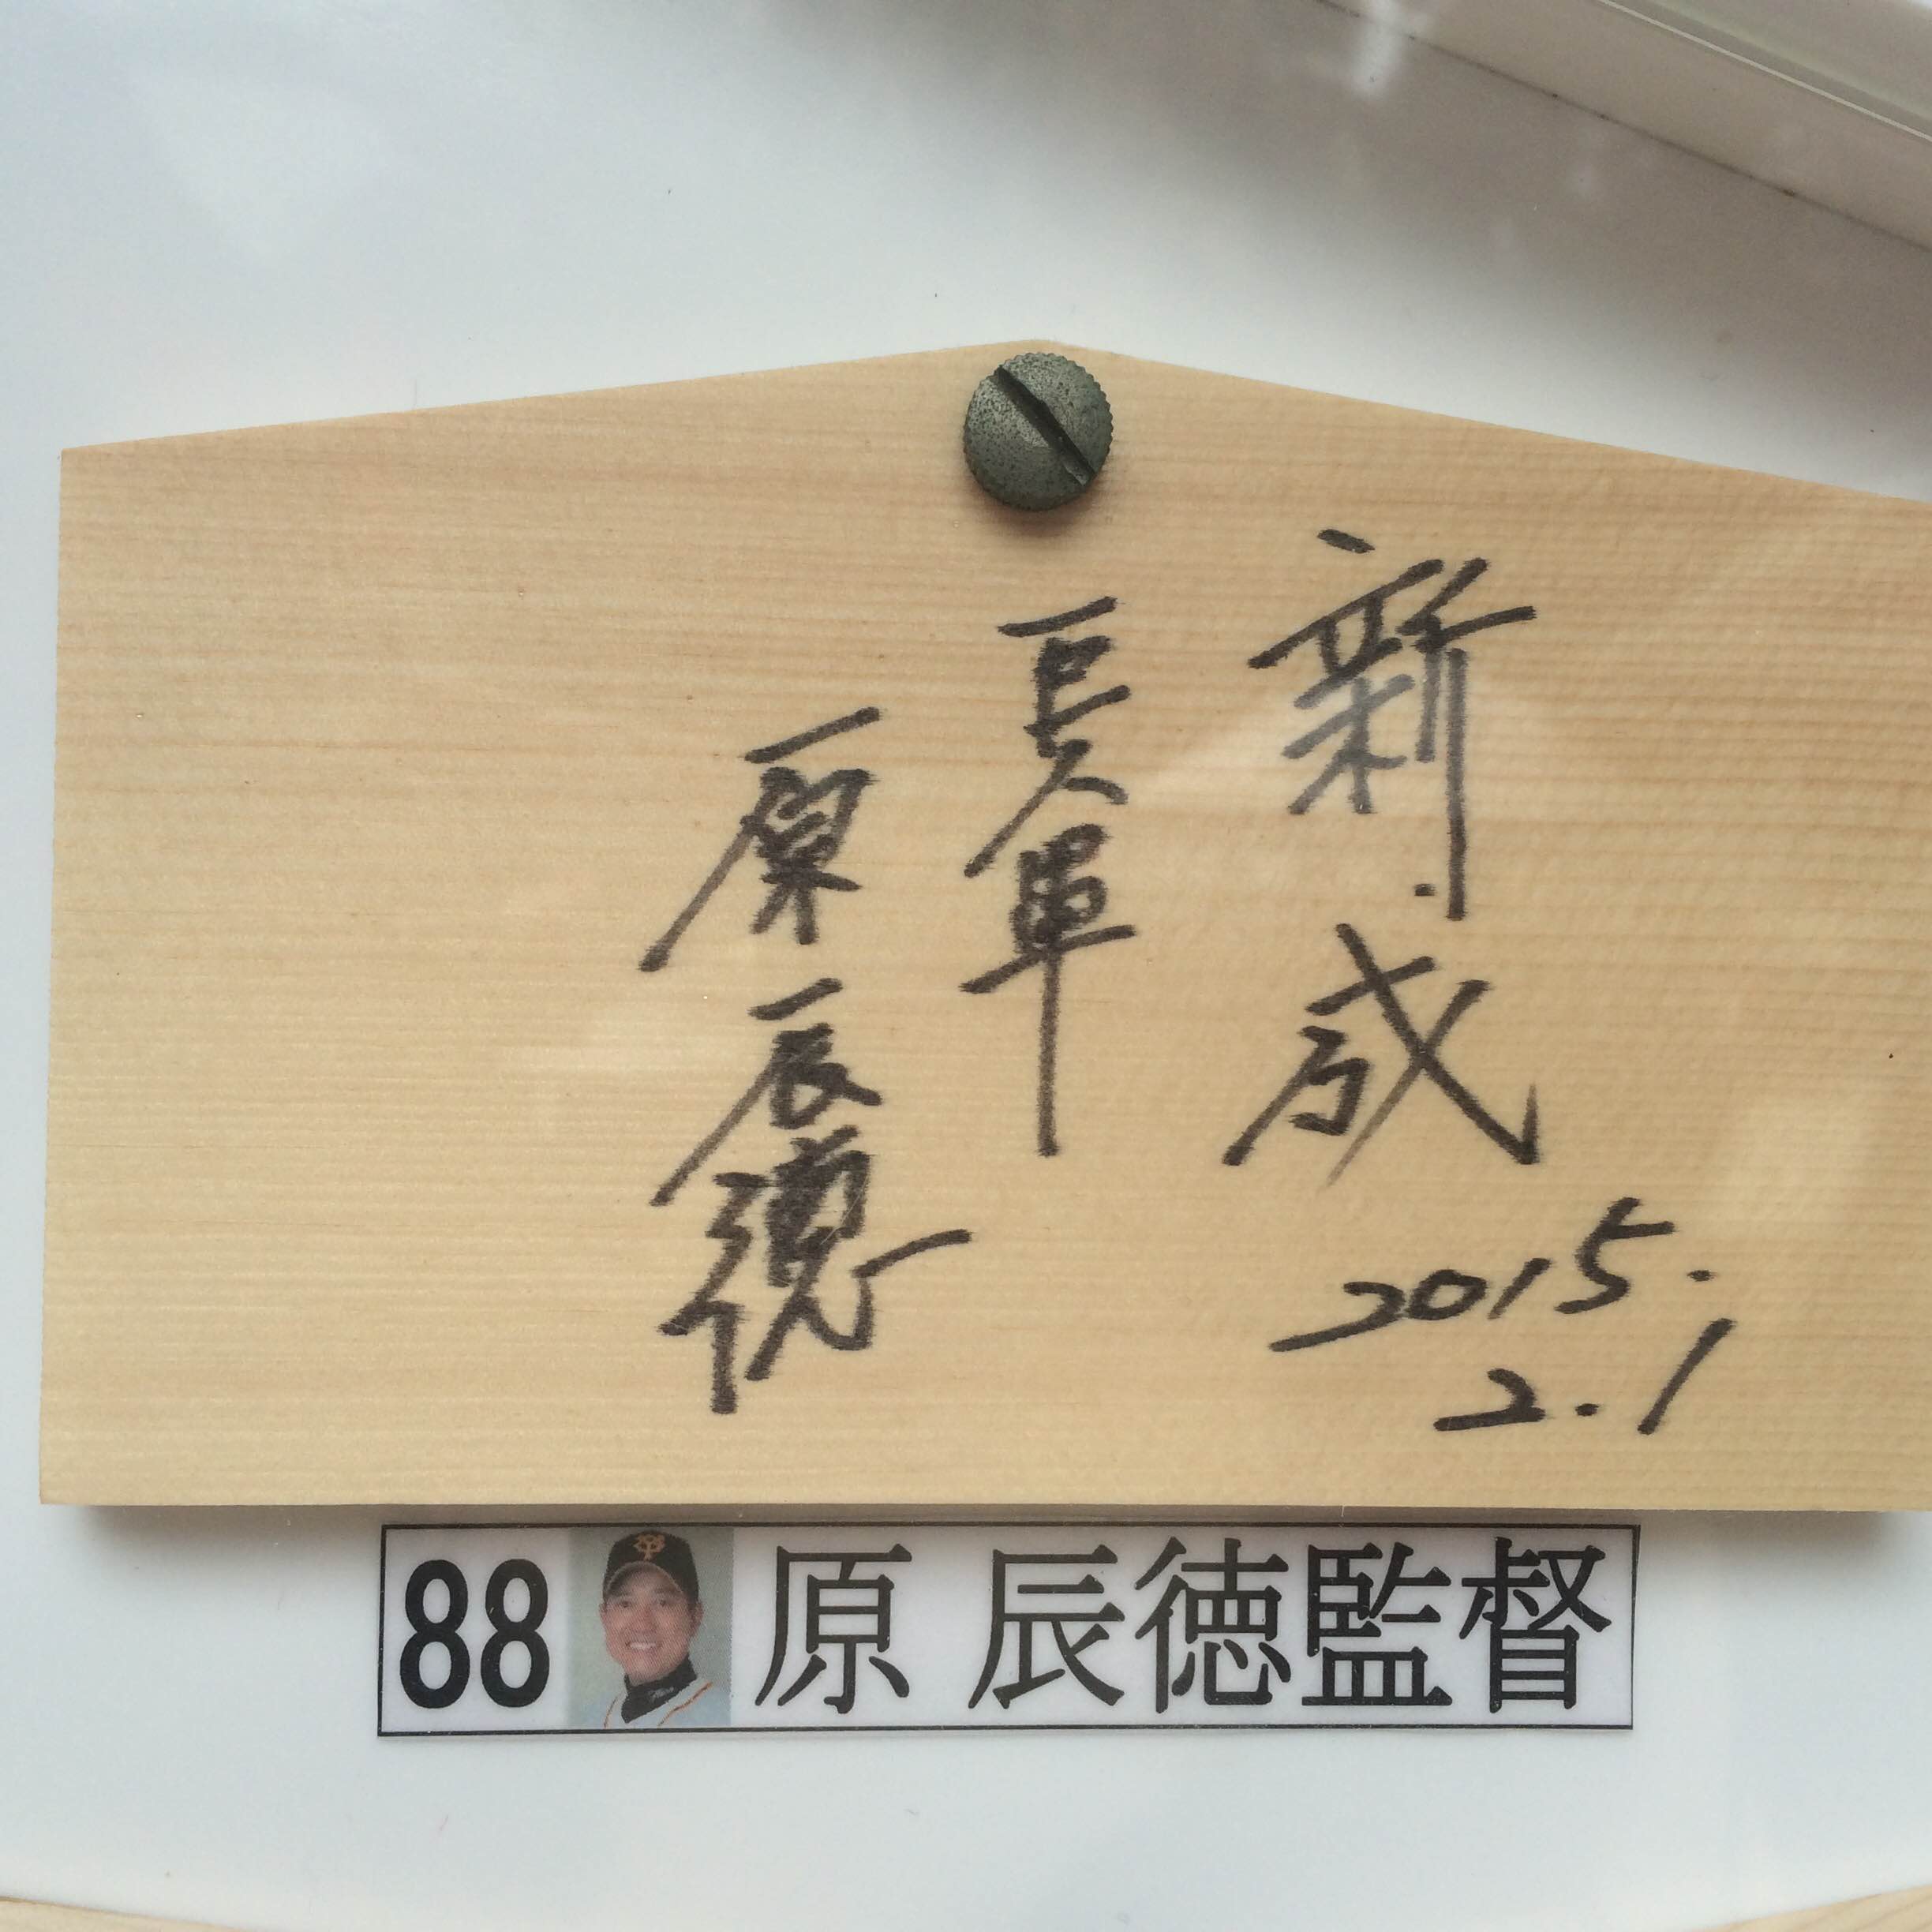 新成
2015.
2.1
巨人軍
原辰徳
88 原 辰徳監督